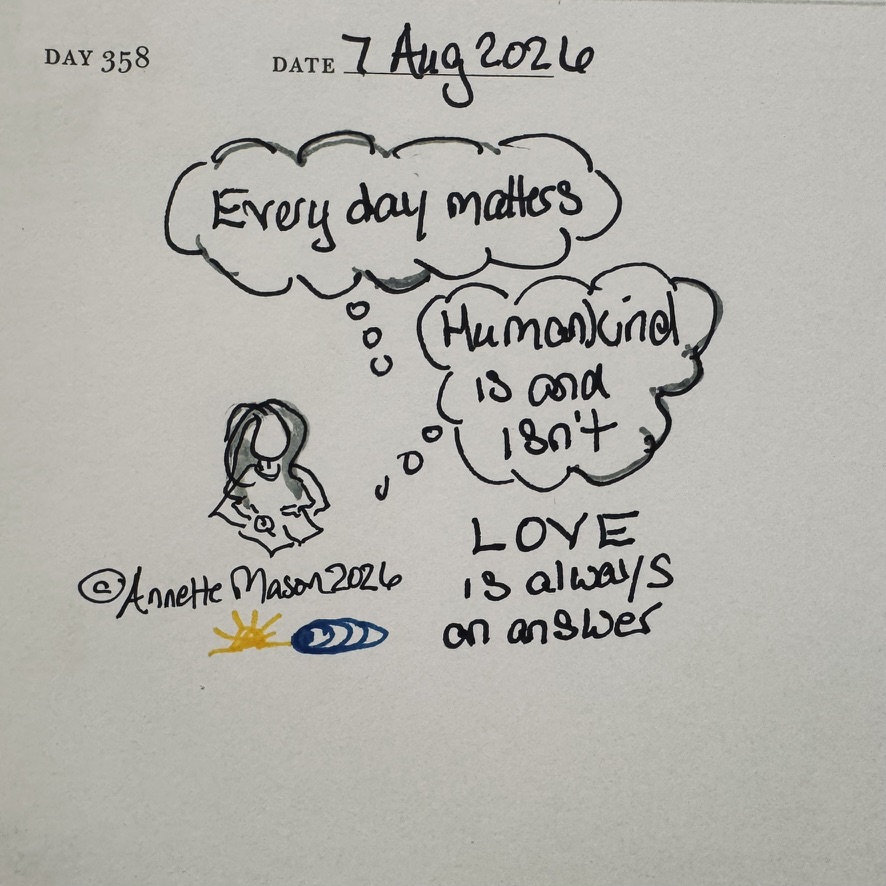 DAY 358
DATE 7 Aug 2026
Every day matters
Humankind
is and
isn't
LOVE
is always
an answer
© Annette Mason 2026